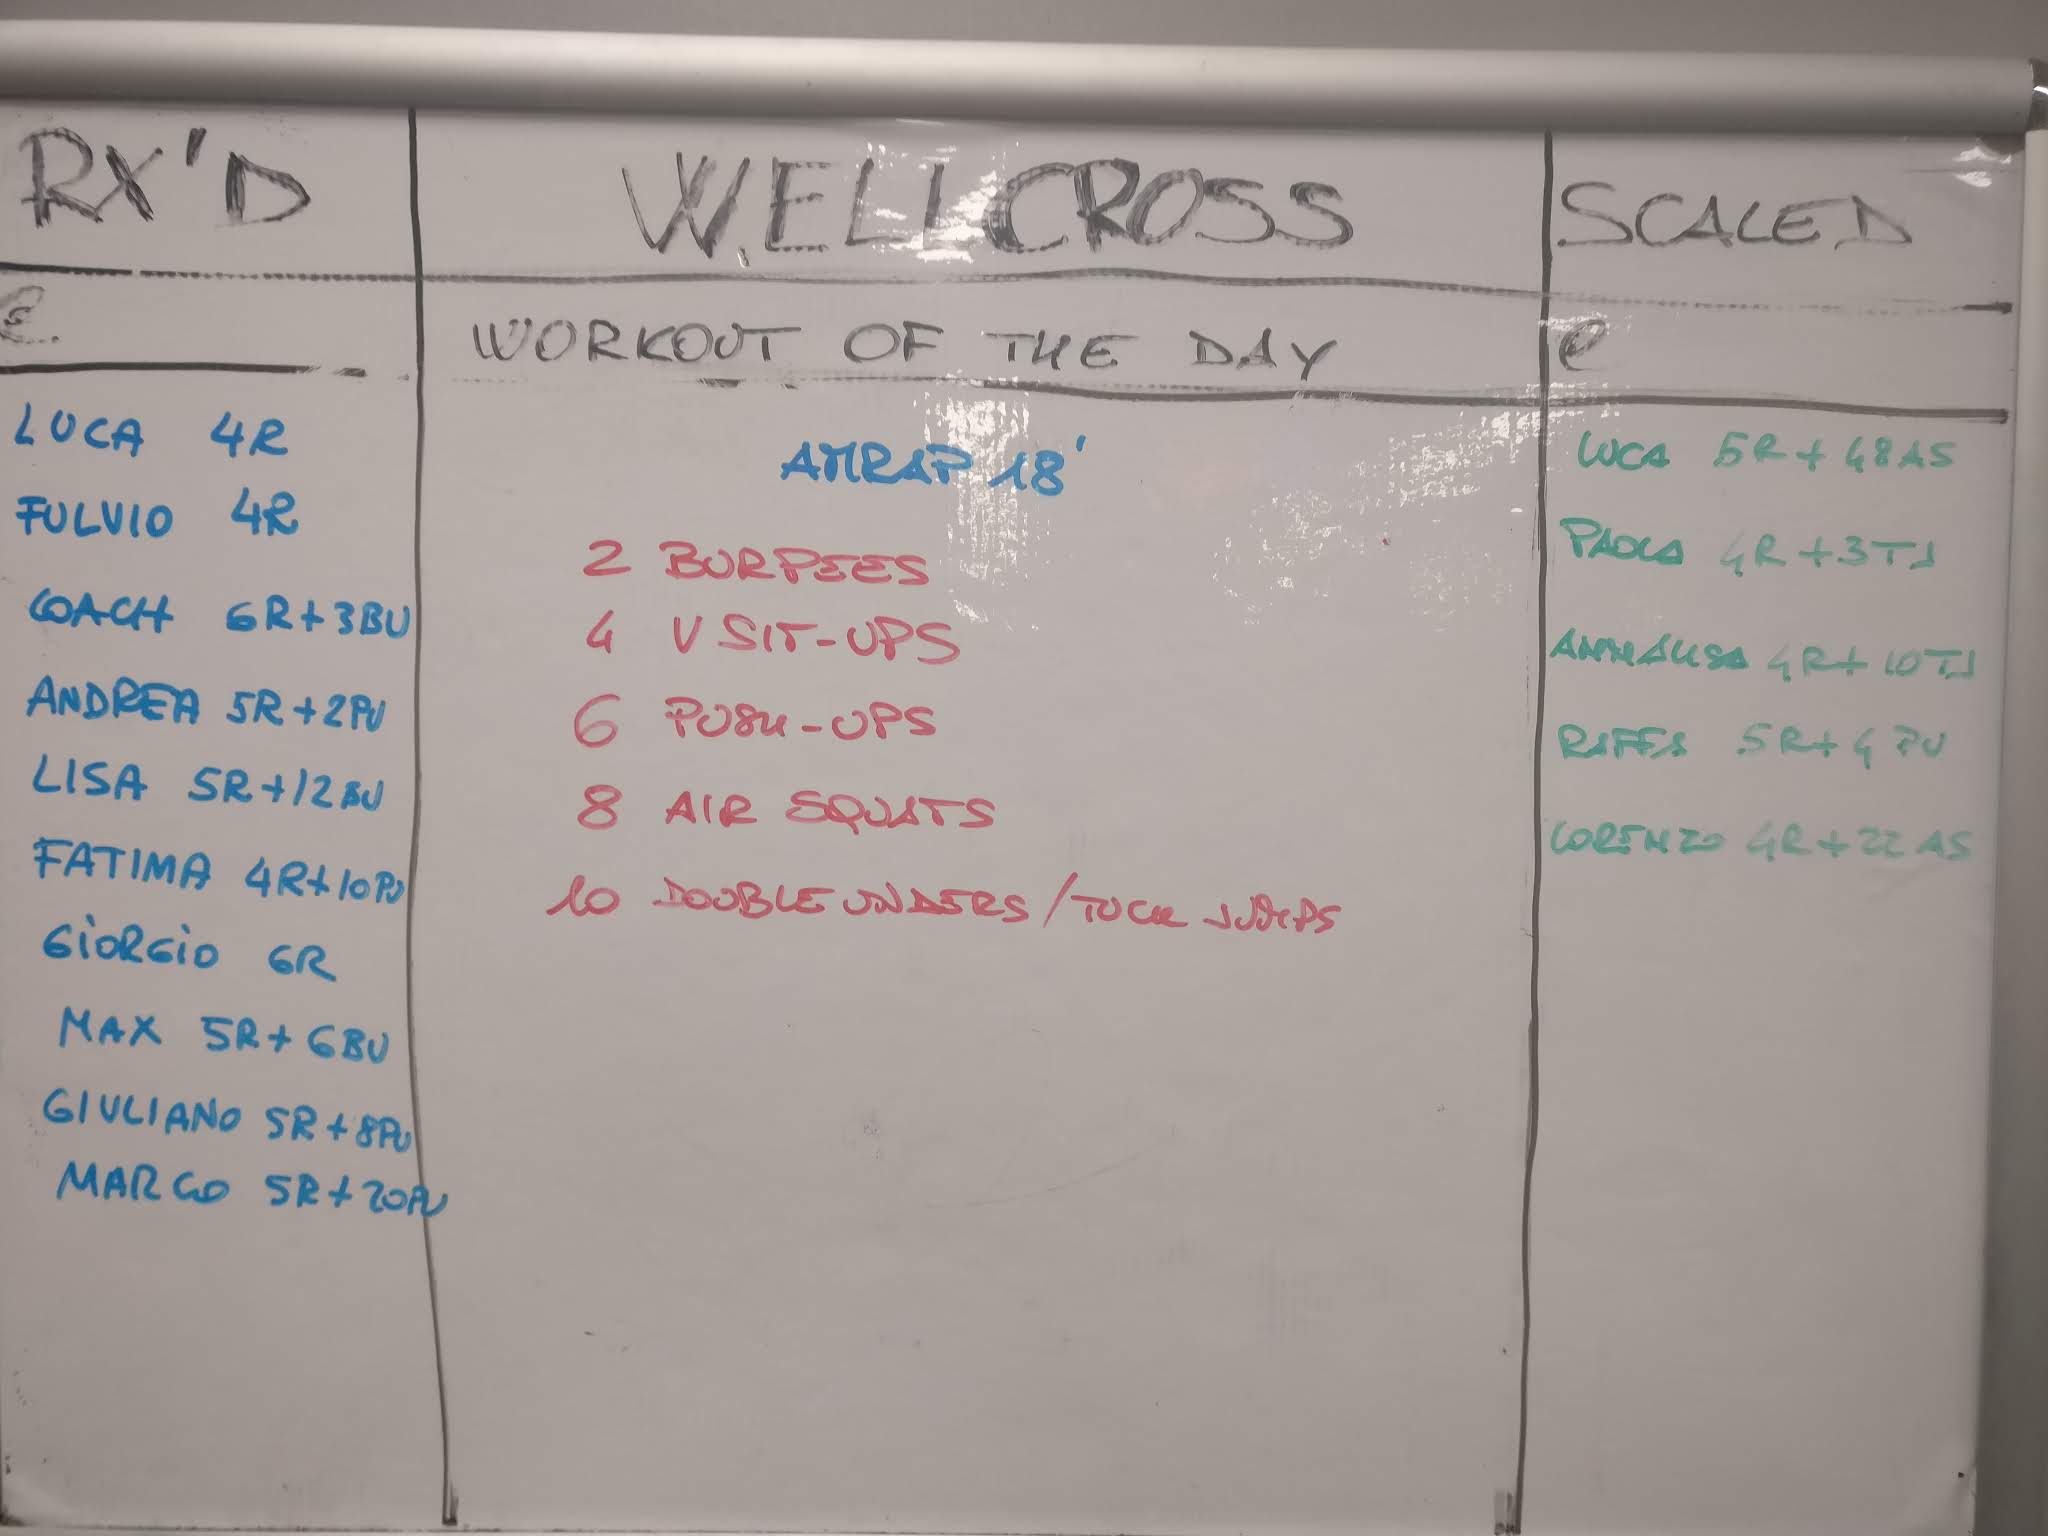 RX'D
LUCA 4R
FULVIO 4R
COACH 6R+3BU
ANDREA 5R+2PU
LISA 5R+12BU
FATIMA 4R+10PU
GIORGIO 6R
MAX 5R+6BU
GIULIANO 5R+8PU
MARCO 5R+20PU
WELLCROSS
WORKOUT OF THE DAY
AMRAP 18'
2 BURPEES
4 V SIT-UPS
6 PUSH-UPS
8 AIR SQUATS
10 DOUBLE UNDERS/TUCK JUMPS
SCALED
LUCA 5R+48AS
PAOLA 4R+3TJ
ANNALISA 4R+10TJ
RAFFA 5R+4PU
LORENZO 4R+22AS